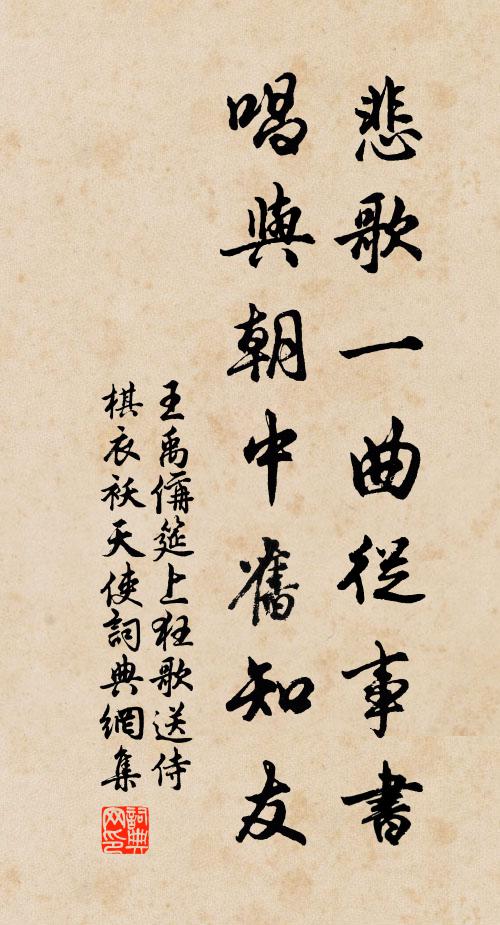 悲歌一曲從事書
唱與朝中舊知友
王禹偁筵上狂歌送侍
棋衣襖天使詞典網集
詞典
网印